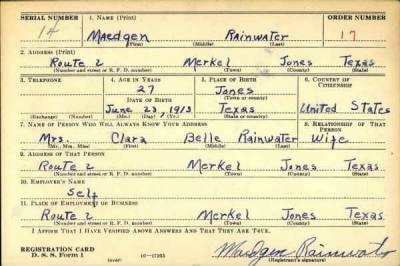 SERIAL NUMBER 1. NAME (Print) ORDER NUMBER
14 Maedgen Rainwater 17
(First) (Middle) (Last)
2. ADDRESS (Print)
Route 2 Merkel Jones Texas
(Number and street or R. F. D. number) (Town) (County) (State)
3. TELEPHONE 4. AGE IN YEARS 5. PLACE OF BIRTH 6. COUNTRY OF CITIZENSHIP
27 Jones
DATE OF BIRTH (Town or county)
June 23, 1913 Texas United States
(Exchange) (Number) (Mo.) (Day) (Yr.) (State or country)
7. NAME OF PERSON WHO WILL ALWAYS KNOW YOUR ADDRESS 8. RELATIONSHIP OF THAT PERSON
Mrs. Clara Belle Rainwater Wife
(Mr., Mrs., Miss) (First) (Middle) (Last)
9. ADDRESS OF THAT PERSON
Route 2 Merkel Jones Texas
(Number and street or R. F. D. number) (Town) (County) (State)
10. EMPLOYER'S NAME
Self
11. PLACE OF EMPLOYMENT OR BUSINESS
Route 2 Merkel Jones Texas
(Number and street or R. F. D. number) (Town) (County) (State)
I AFFIRM THAT I HAVE VERIFIED ABOVE ANSWERS AND THAT THEY ARE TRUE.
REGISTRATION CARD
D. S. S. Form 1 (over) Maedgen Rainwater
(Registrant's signature)